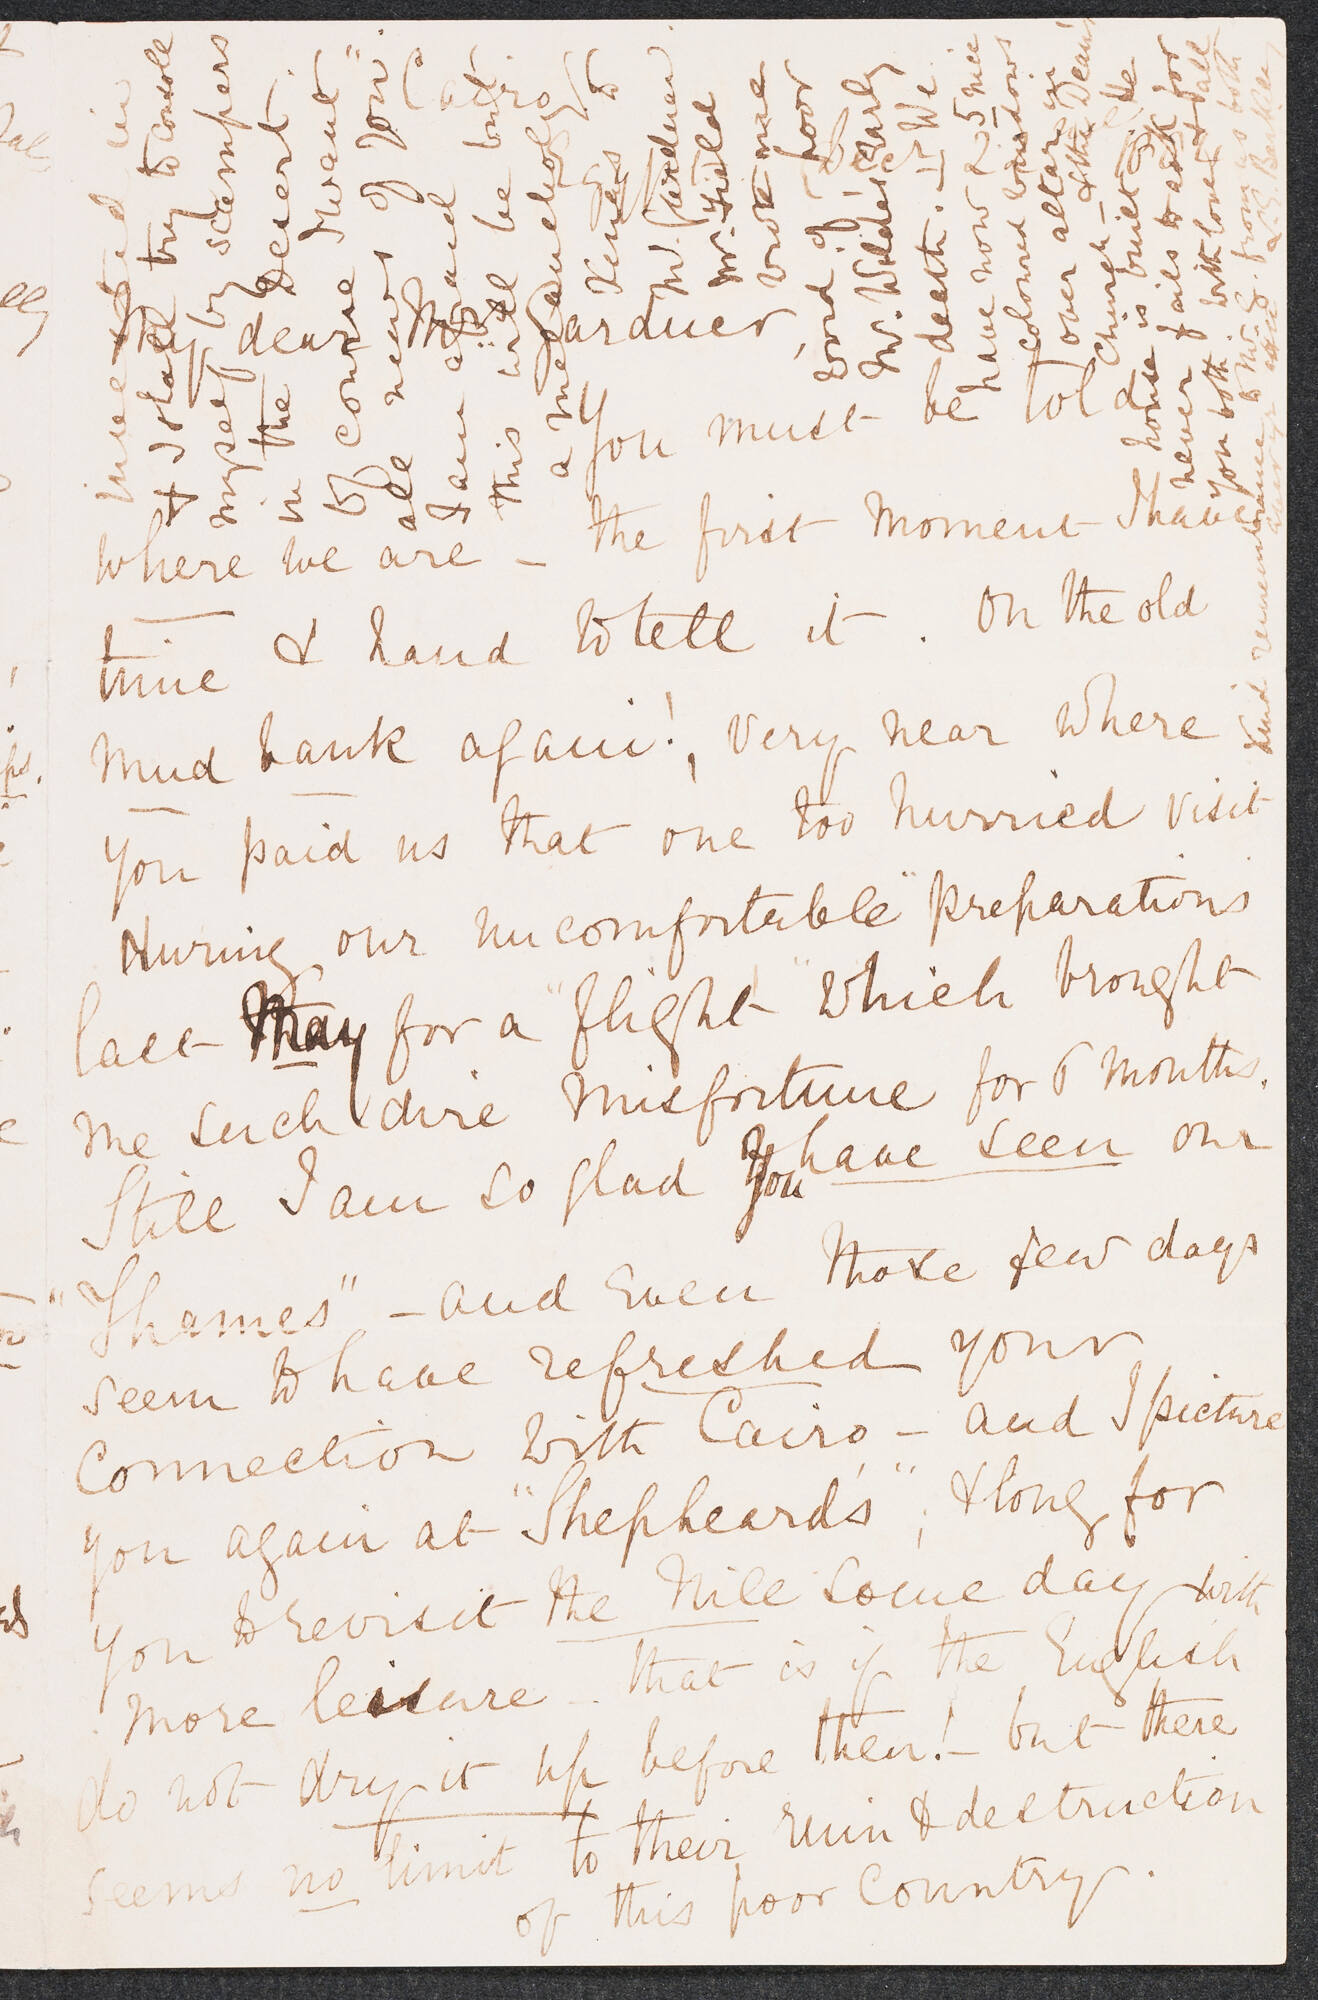 My dear Mrs Gardner,
You must be told
where we are – the first moment I have
time & hand to tell it. On the old
mud bank again!, very near where
you paid us that one too hurried visit
during our uncomfortable "preparations
last May for a "flight" which brought
me such dire misfortune for 6 months.
Still I am so glad you have seen our
"Thames" – and even those few days
seem to have refreshed your
connection with Cairo, – and I picture
you again at "Shepheard's", & long for
you to revisit the Nile some day with
more leisure – that is if the English
do not dry it up before then! – but there
seems no limit to their ruin & destruction
of this poor Country.
invested in
& I shall try to console
myself by scampers
in the Desert.
of course I want
all news of you".
I am afraid Cairo
this will be but
a melancholy
Kindest to
Mr. Gardner.
Mr. Field
wrote me
word of poor
Mr. Wilde's early
death. – We
have now 25 nice
coloured windows
over altar in
Church – & the Dean's
house is built. He
never fails to ask for
you both. with love & all
kind remembrance to Mr. G. from us both